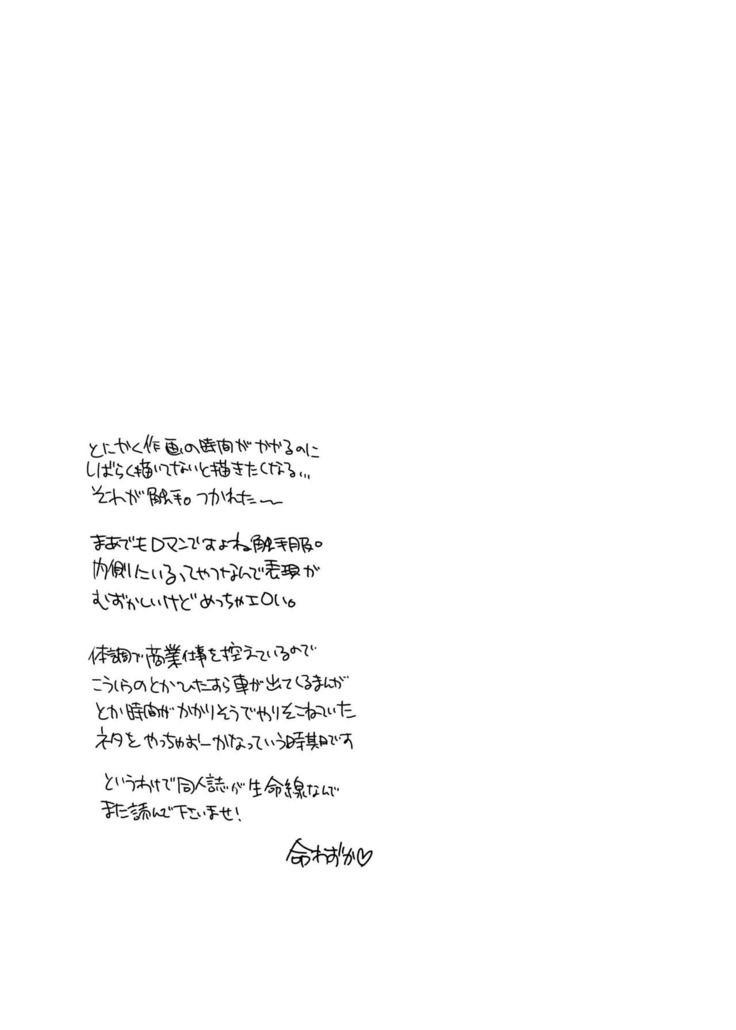 とにかく作画の時間がかかるのに
しばらく描いてないと描きたくなる...
それが触手。つかれた〜
まあでもロマンですよね触手服。
内側にいるってやつなんで表現が
むずかしいけどめっちゃエロい。
体調で商業仕事を控えているので
こういうのとかひたすら車が出てくるまんが
とか時間がかかりそうでやりそこねていた
ネタをやっちゃおーかなっていう時期です
というわけで同人誌が生命線なんで
また読んで下さいませ!
命わずか♡